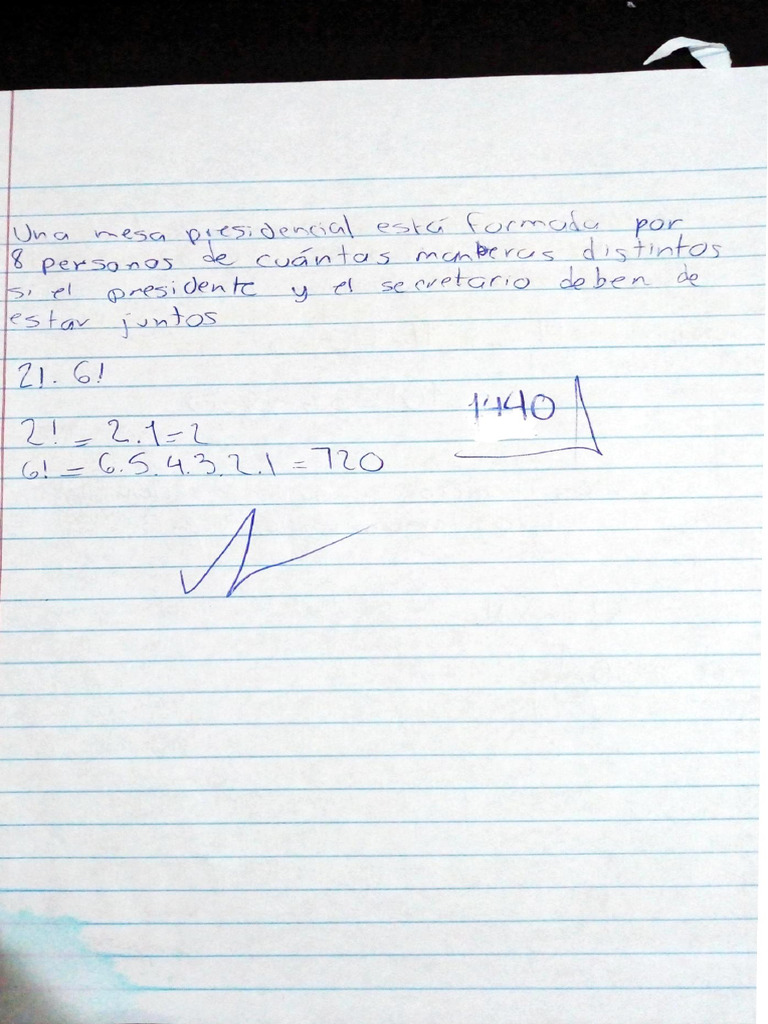 Una mesa presidencial está formada por
8 personas de cuántas maneras distintos
si el presidente y el secretario deben de
estar juntos
2!. 6!
1440
2! = 2.1=2
6! = 6.5.4.3.2.1 = 720